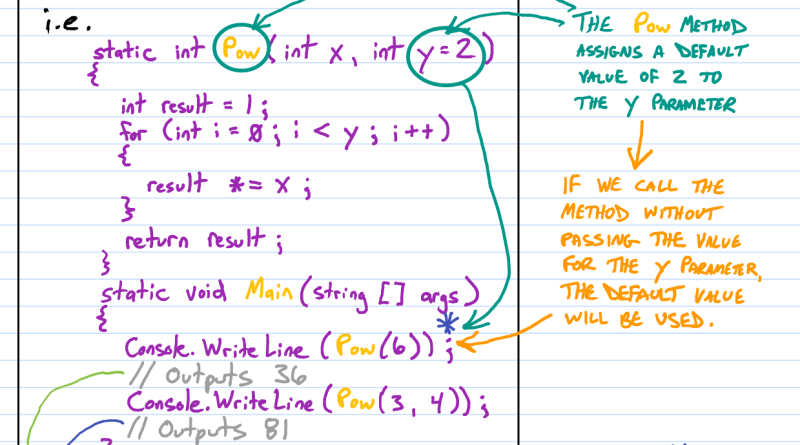 i.e.
static int Pow(int x, int y=2)
{
int result = 1;
for (int i = 0; i < y; i++)
{
result *= x;
}
return result;
}
static void Main(string [] args)
{
*
Console.WriteLine(Pow(6));
// Outputs 36
Console.WriteLine(Pow(3, 4));
// Outputs 81
THE Pow METHOD
ASSIGNS A DEFAULT
VALUE OF 2 TO
THE Y PARAMETER
IF WE CALL THE
METHOD WITHOUT
PASSING THE VALUE
FOR THE Y PARAMETER,
THE DEFAULT VALUE
WILL BE USED.